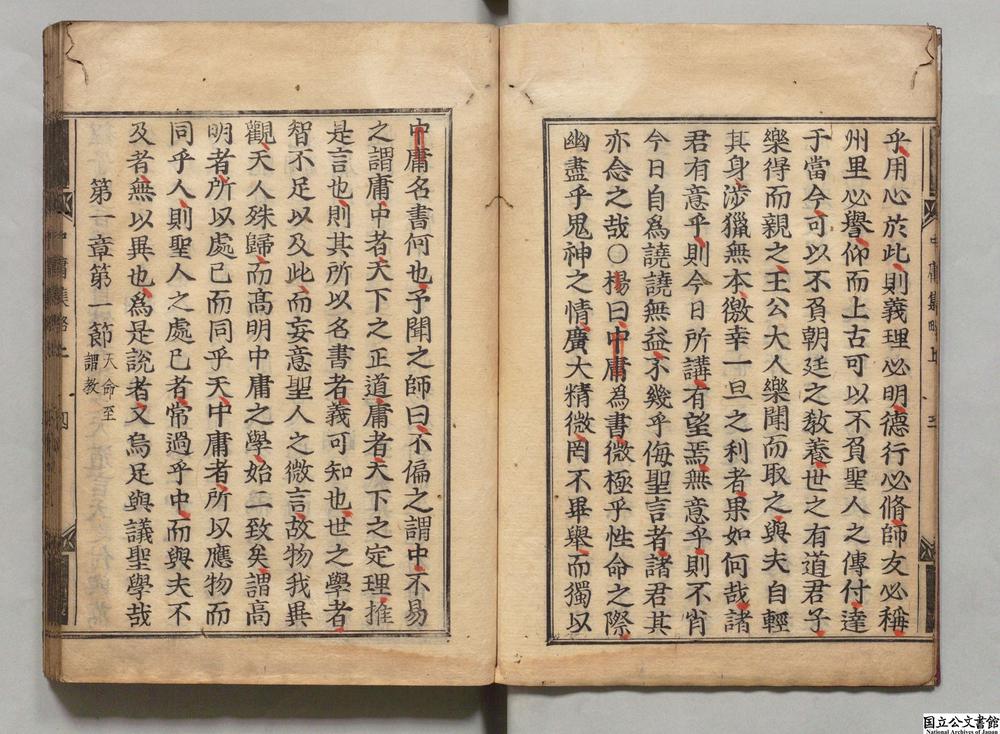 乎用心於此則義理必明德行必脩師友必稱
州里必譽仰而上古可以不負聖人之傳付達
于當今可以不負朝廷之教養世之有道君子
樂得而親之王公大人樂聞而取之與夫自輕
其身涉獵無本徼幸一旦之利者果如何哉諸
君有意乎則今日所講有望焉無意乎則不肖
今日自爲譊譊無益不幾乎侮聖言者諸君其
亦念之哉○楊曰中庸爲書微極乎性命之際
幽盡乎鬼神之情廣大精微罔不畢舉而獨以
中庸名書何也予聞之師曰不偏之謂中不易
之謂庸中者天下之正道庸者天下之定理推
是言也則其所以名書者義可知也世之學者
智不足以及此而妄意聖人之微言故物我異
觀天人殊歸而髙明中庸之學始二致矣謂高
明者所以處已而同乎天中庸者所以應物而
同乎人則聖人之處已者常過乎中而與夫不
及者無以異也爲是說者又烏足與議聖學哉
第一章第一節天命至謂教
中庸集略上 三
中庸集略上 四
国立公文書館
National Archives of Japan